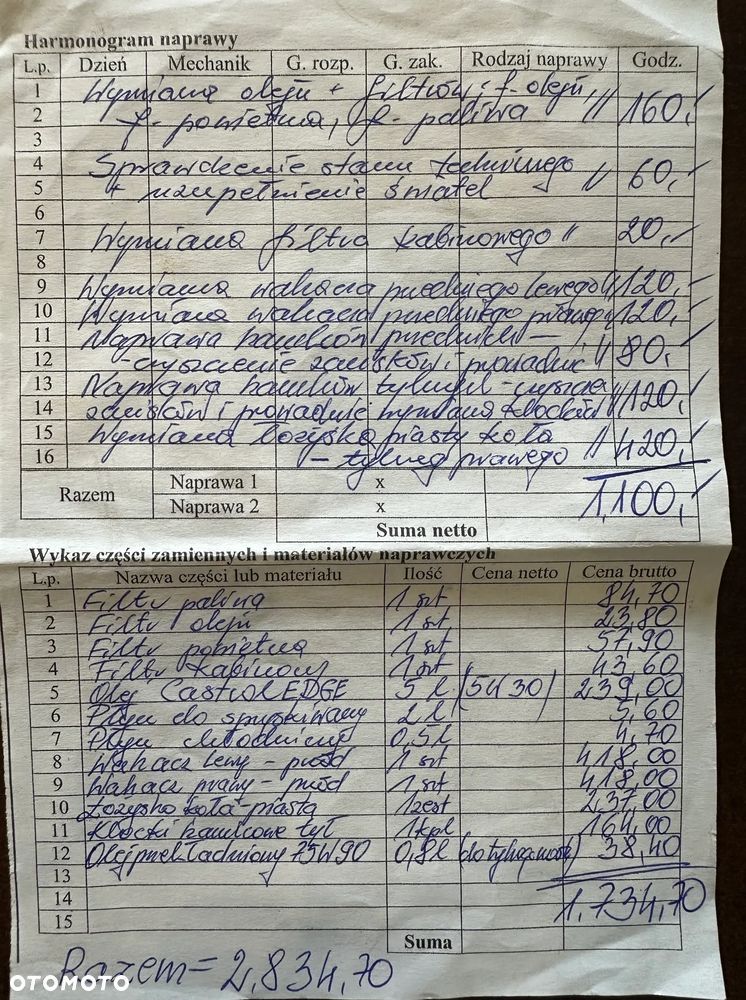 Harmonogram naprawy
L.p. Dzień Mechanik G. rozp. G. zak. Rodzaj naprawy Godz.
1 Wymiana oleju + filtrów: f-oleju,
2 f-powietrza, f-paliwa " 160,-
3
4 Sprawdzenie stanu technicznego
5 + uzupełnienie świateł " 60,-
6
7 Wymiana filtra kabinowego " 20,-
8
9 Wymiana wahacza przedniego lewego " 120,-
10 Wymiana wahacza przedniego prawego " 120,-
11 Naprawa hamulców przednich -
12 - czyszczenie zacisków i prowadnic " 80,-
13 Naprawa hamulców tylnych - czyszcz.
14 zacisków i prowadnic wymiana klocków " 120,-
15 Wymiana łożyska piasty koła
16 - tylnego prawego " 420,-
Razem Naprawa 1 x 1,100,-
Naprawa 2 x
Suma netto
Wykaz części zamiennych i materiałów naprawczych
L.p. Nazwa części lub materiału Ilość Cena netto Cena brutto
1 Filtr paliwa 1 szt 84,70
2 Filtr oleju 1 szt 23,80
3 Filtr powietrza 1 szt 57,90
4 Filtr kabinowy 1 szt 43,60
5 Olej Castrol EDGE 5 l (5W30) 239,00
6 Płyn do spryskiwaczy 2 l 5,60
7 Płyn chłodniczy 0,5 l 4,70
8 Wahacz lewy - przód 1 szt 418,00
9 Wahacz prawy - przód 1 szt 418,00
10 Łożysko koła - piasta 1 zest 237,00
11 Klocki hamulcowe tył 1 kpl 164,00
12 Olej przekładniowy 75W90 0,8 l (do tylnego mostu) 38,40
13
14 1,734,70
15
Suma
Razem = 2,834,70
OTOMOTO